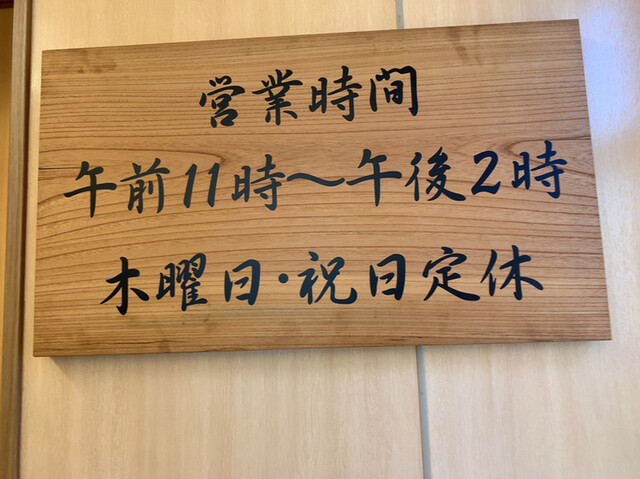 営業時間
午前11時〜午後2時
木曜日・祝日定休